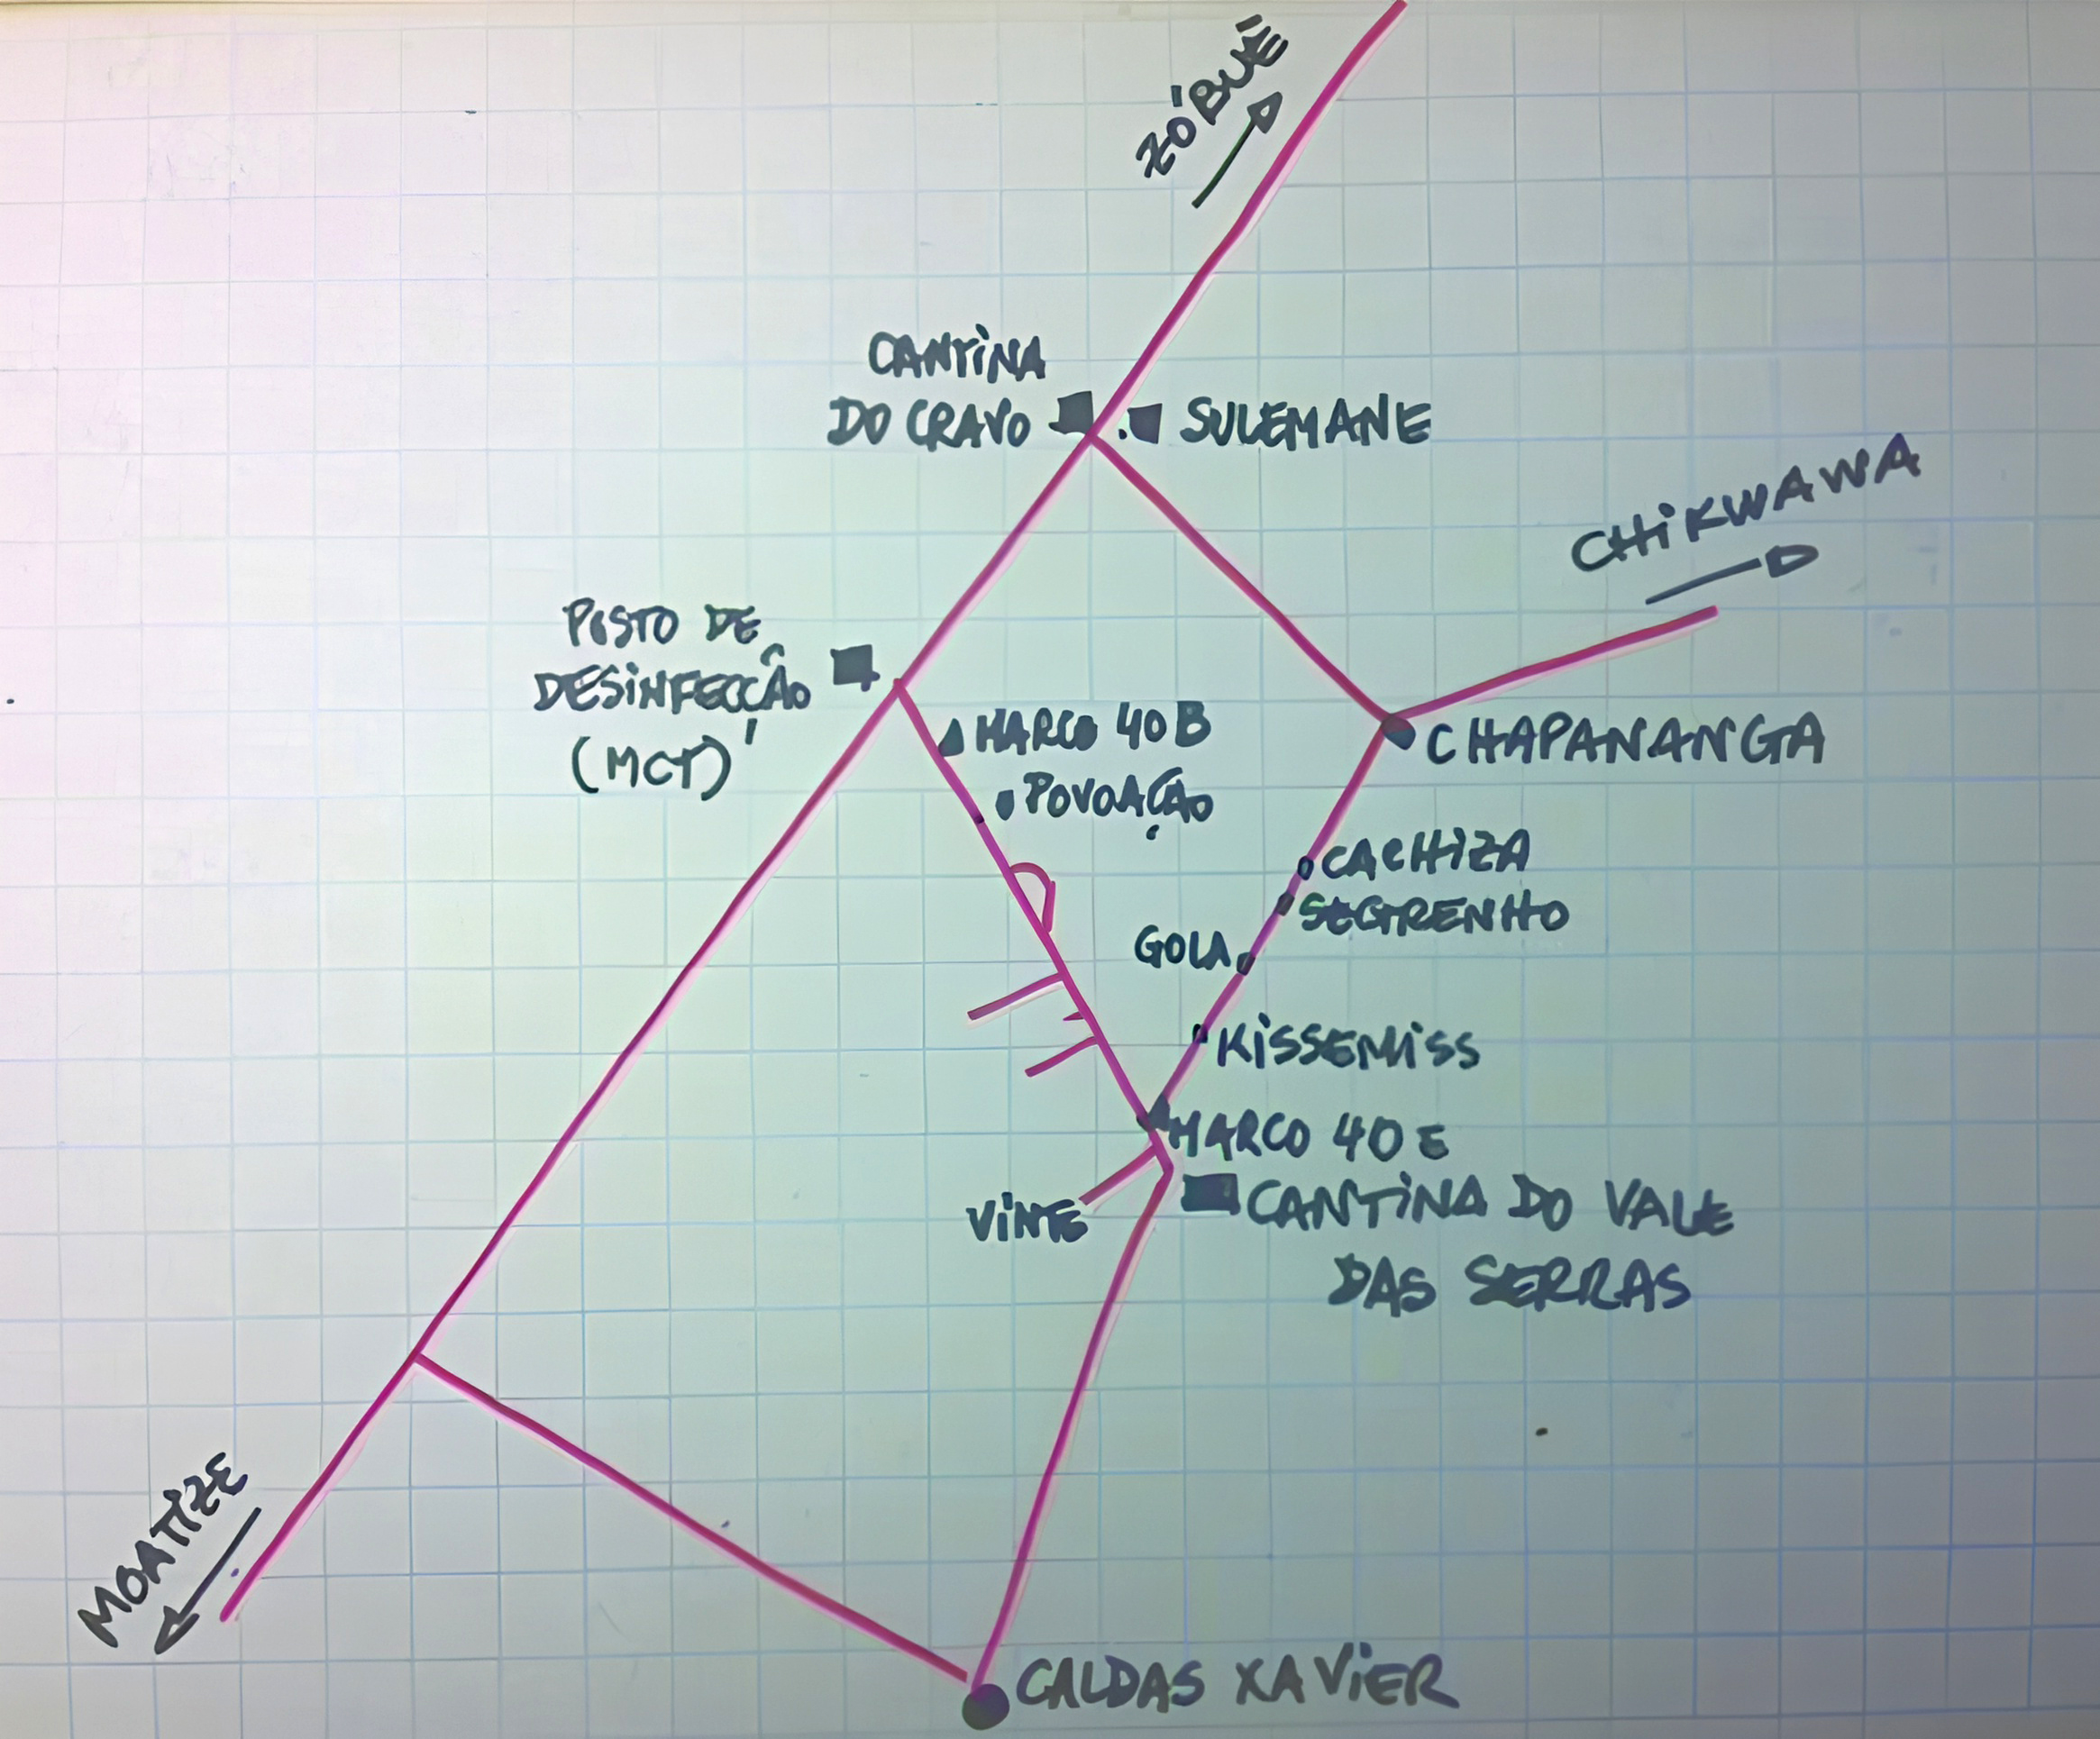 ZÓBUÈ
CANTINA
DO CRAVO
SULEMANE
CHIKWAWA
POSTO DE
DESINFECÇÃO
(MCT)
MARCO 40B
POVOAÇÃO
CHAPANANGA
CACHIZA
SEGRENHO
GOLA
KISSEMISS
MARCO 40 E
VINTE
CANTINA DO VALE
DAS SERRAS
MOATIZE
CALDAS XAVIER